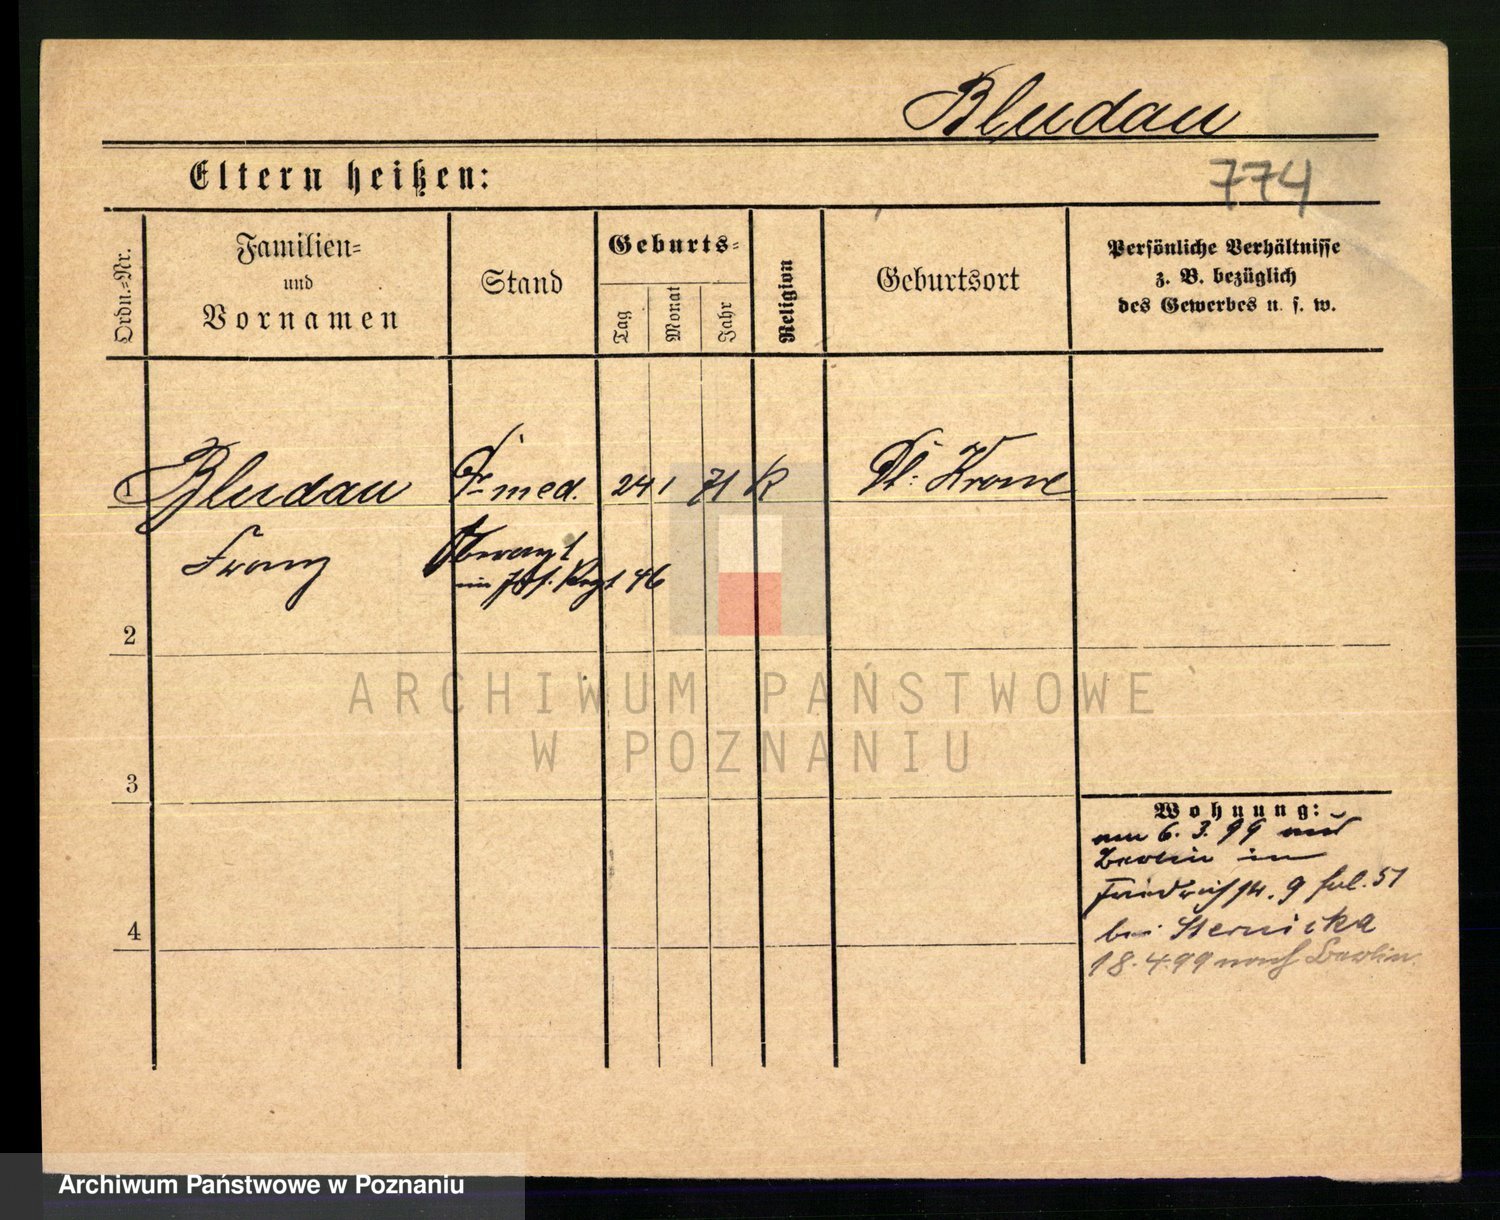 Bludau
Eltern heißen:
774
Ordn.=Nr.
Familien=
und
Vornamen
Stand
Geburts=
Tag
Monat
Jahr
Religion
Geburtsort
Persönliche Verhältnisse
z. B. bezüglich
des Gewerbes u. s. w.
1 Bludau Dr med. 24 1 71 K Dt. Krone
Franz Oberarzt
im Inf. Regt 46
2
3
4
ARCHIWUM PAŃSTWOWE
W POZNANIU
Wohnung:
am 6. 3. 99 aus
Berlin in
Friedrichstr. 9 fol. 51
bei Sternicka
18. 4. 99 nach Berlin.
Archiwum Państwowe w Poznaniu